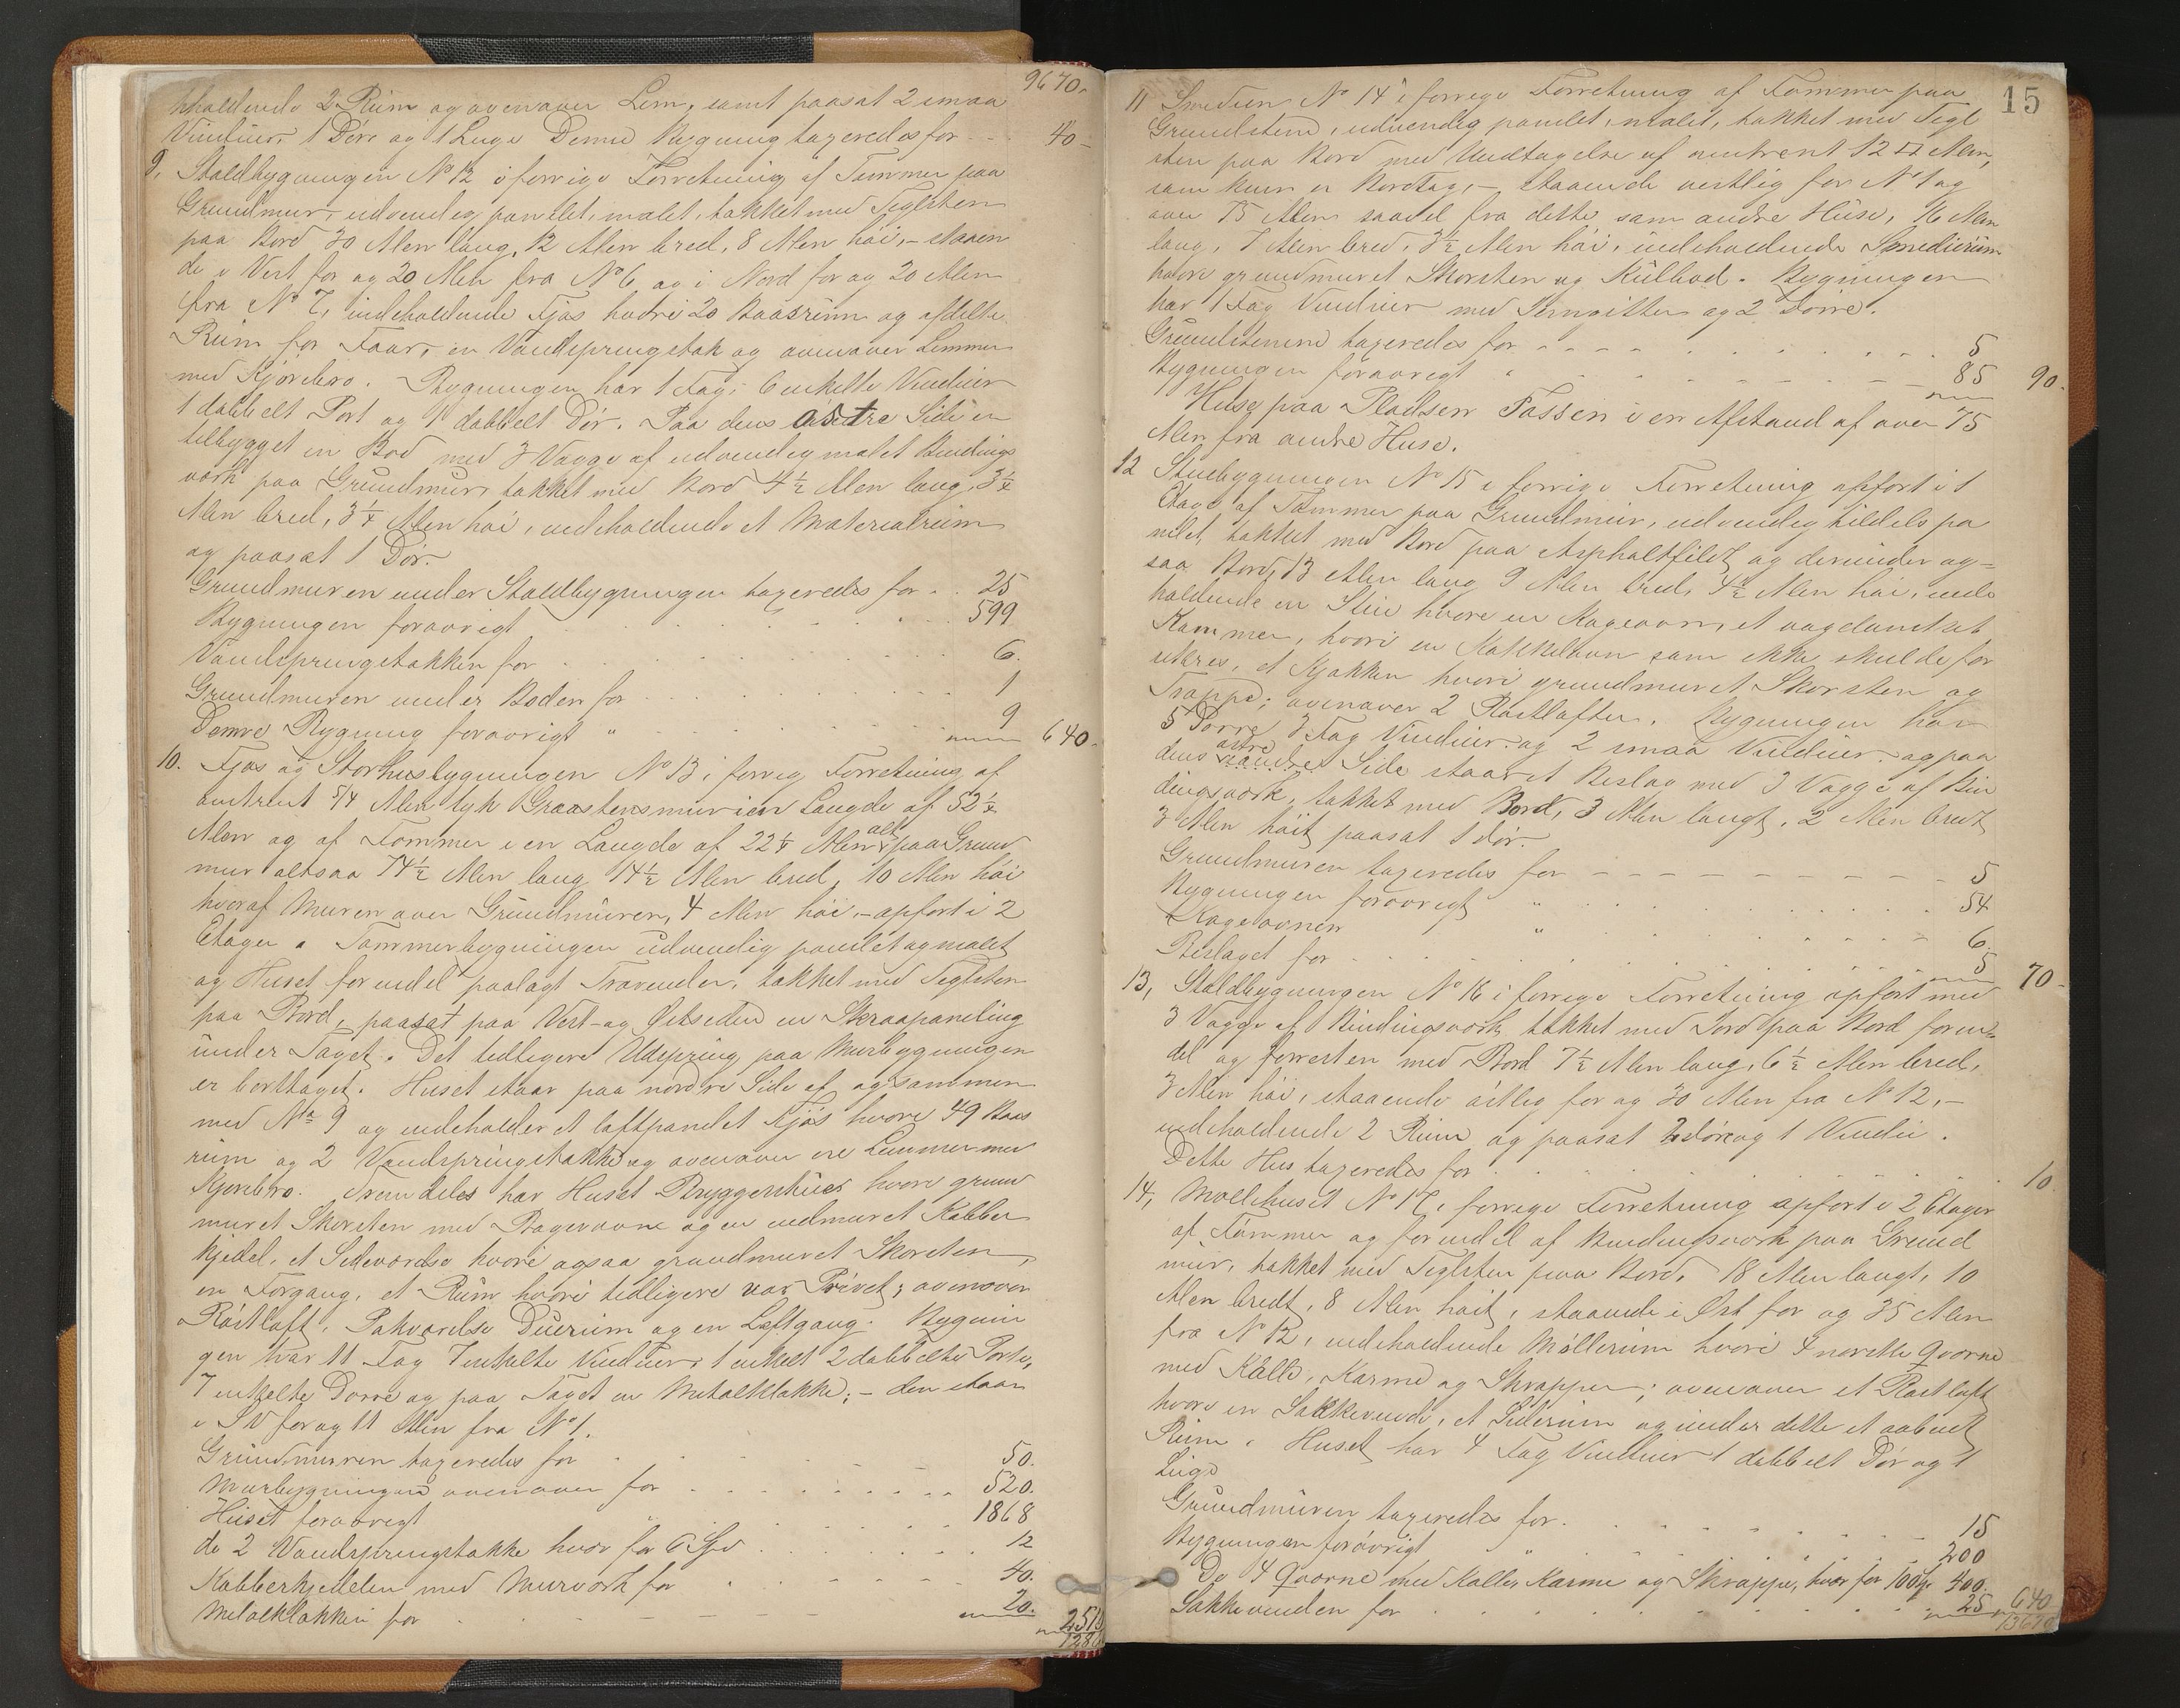 9670.
hholdende 2 Rum og ovenover Lem, samt paasat 2 smaa
Vinduer, 1 Dør og 1 Luge Denne Bygning taxeredes for 40
9, Staldbygningen No 12 i forrige Forretning af Tømmer paa
Grundmur, udvendig panelet, malet, takket med Teglsten
paa Bord 30 Alen lang, 12 Alen bred, 8 Alen høi, - staaen
de i Vest for og 20 Alen fra No 6 og i Nord for og 20 Alen
fra No 7, indeholdende Fjøs hvori 20 Baasrum og afdelte
Rum for Faar, en Vandspringstok og ovenover Lemmer
med Kjørebro. Bygningen har 1 Fag, 6 enkelte Vinduer
1 dobbelt Port og 1 dobbelt Dør. Paa dens østre Side er
tilbygget en Bod med 3 Vægge af udvendig malet Bindings
værk paa Grundmur, takket med Bord 4 1/2 Alen lang, 3 1/4
Alen bred, 3 1/4 Alen høi, indeholdende et Materialrum
og paasat 1 Dør.
Grundmuren under Staldbygningen taxeredes for 25
Bygningen forøvrigt 599
Vandspringstokken for 6.
Grundmuren under Boden for 1
Denne Bygning forøvrigt " 9 640.
10. Fjøs og Storhusbygningen No 13 i forrig Forretning af
omtrent 5/4 Alen tyk Graastensmur i en Længde af 52 1/4
Alen og af Tømmer i en Længde af 22 1/4 Alen alt paa Grund
mur altsaa 74 1/2 Alen lang 14 1/2 Alen bred, 10 Alen høi
hvoraf Muren over Grundmuren, 4 Alen høi, - opført i 2
Etager. Tømmerbygningen udvendig panelet og malet
og Huset forendel paalagt Travender, takket med Teglsten
paa Bord, paasat paa Vest- og Østsiden en Skraapaneling
under Taget. Det tidligere Udspring paa Murbygningen
er borttaget. Huset staar paa nordre Side af og sammen
med No 9 og indeholder et loftpanelet Fjøs hvori 49 Baas
rum og 2 Vandspringstokke og ovenover ere Lemmer med
Kjørebro. Fremdeles har Huset Bryggerhus hvori grund
muret Skorsten med Bagerovne og en indmuret Kobber
kjedel, et Sideværelse hvori ogsaa grundmuret Skorsten,
en Forgang, et Rum hvori tidligere var Privet; ovenover
Røstloft, Pakværelse Duerum og en Loftgang. Bygnin
gen har 11 Fag 7 enkelte Vinduer, 1 enkelt 2 dobbelte Porte,
7 enkelte Dørre og paa Taget en Metalklokke; - den staar
i SV for og 11 Alen fra No 1.
Grundmuren taxeredes for 50.
Murbygningen ovenover for 520.
Huset forøvrigt 1868
de 2 Vandspringstokke hver for 6 Spd 12
Kobberkjedelen med Murværk for 40.
Metalklokken for 20.
2510
15
11 Smedien No 14 i forrige Forretning af Tømmer paa
Grundstene, udvendig panelet, malet, takket med Tegl
sten paa Bord med Undtagelse af omtrent 12 □ Alen,
som kun er Bordtag, - staaende vestlig for No 1 og
over 75 Alen saavel fra dette som andre Huse, 16 Alen
lang, 7 Alen bred, 3 1/2 Alen høi, indeholdende Smedierum
hvori grundmuret Skorsten og Kulbod. Bygningen
har 1 Fag Vinduer med Jerngitter og 2 Dørre.
Grundstenene taxeredes for 5
Bygningen forøvrigt " 85 90.
Huse paa Pladsen Fossen i en Afstand af over 75
Alen fra andre Huse.
12 Stuebygningen No 15 i forrige Forretning opført i 1
Etage af Tømmer paa Grundmur, udvendig tildels pa
nelet, takket med Bord paa Asphaltfilt og derunder og=
saa Bord, 13 Alen lang 9 Alen bred, 4 1/2 Alen høi, inde
holdende en Stue hvori en Kageovn, et
Kammer, hvori en Kakkelovn som ikke skulde for
sikres, et Kjøkken hvori grundmuret Skorsten og
Trappe; ovenover 2 Røstlofter. Bygningen har
5 Dørre 3 Fag Vinduer og 2 smaa Vinduer og paa
dens østre Side staar et Bislag med 3 Vægge af Bin
dingsværk, takket med Bord, 3 Alen langt, 2 Alen bredt
3 Alen høit paasat 1 dør.
Grundmuren taxeredes for 5
Bygningen forøvrigt " 54
Kageovnen " 6.
Bislaget for 5 70.
13, Staldbygningen No 16 i forrige Forretning opført med
3 Vægge af Bindingsværk takket med Jord paa Bord foren=
del og forresten med Bord 7 1/2 Alen lang, 6 1/2 Alen bred,
3 Alen høi, staaende østlig for og 30 Alen fra No 12, -
indeholdende 2 Rum og paasat 2 døre og 1 Vindu.
Dette Hus taxeredes for 10
14, Møllehuset No 17 i forrige Forretning opført i 2 Etager
af Tømmer og forendel af Bindingsværk paa Grund
mur, takket med Teglsten paa Bord, 18 Alen langt, 10
Alen bredt, 8 Alen høit, staaende i Øst for og 35 Alen
fra No 12, indeholdende Møllerum hvori 4 norske Qværne
med Kalle, Karme og Skrapper; ovenover et Røstloft
hvori en Sækkevinde, et Siderum og under dette et aabent
Rum. Huset har 4 Fag Vinduer 1 dobbelt Dør og 1
Luge
Grundmuren taxeredes for 15
Bygningen forøvrigt " 200
De 4 Qværne med Kaller Karme og Skrapper, hver for 100 400.
Sækkevinden for 25 640
13670